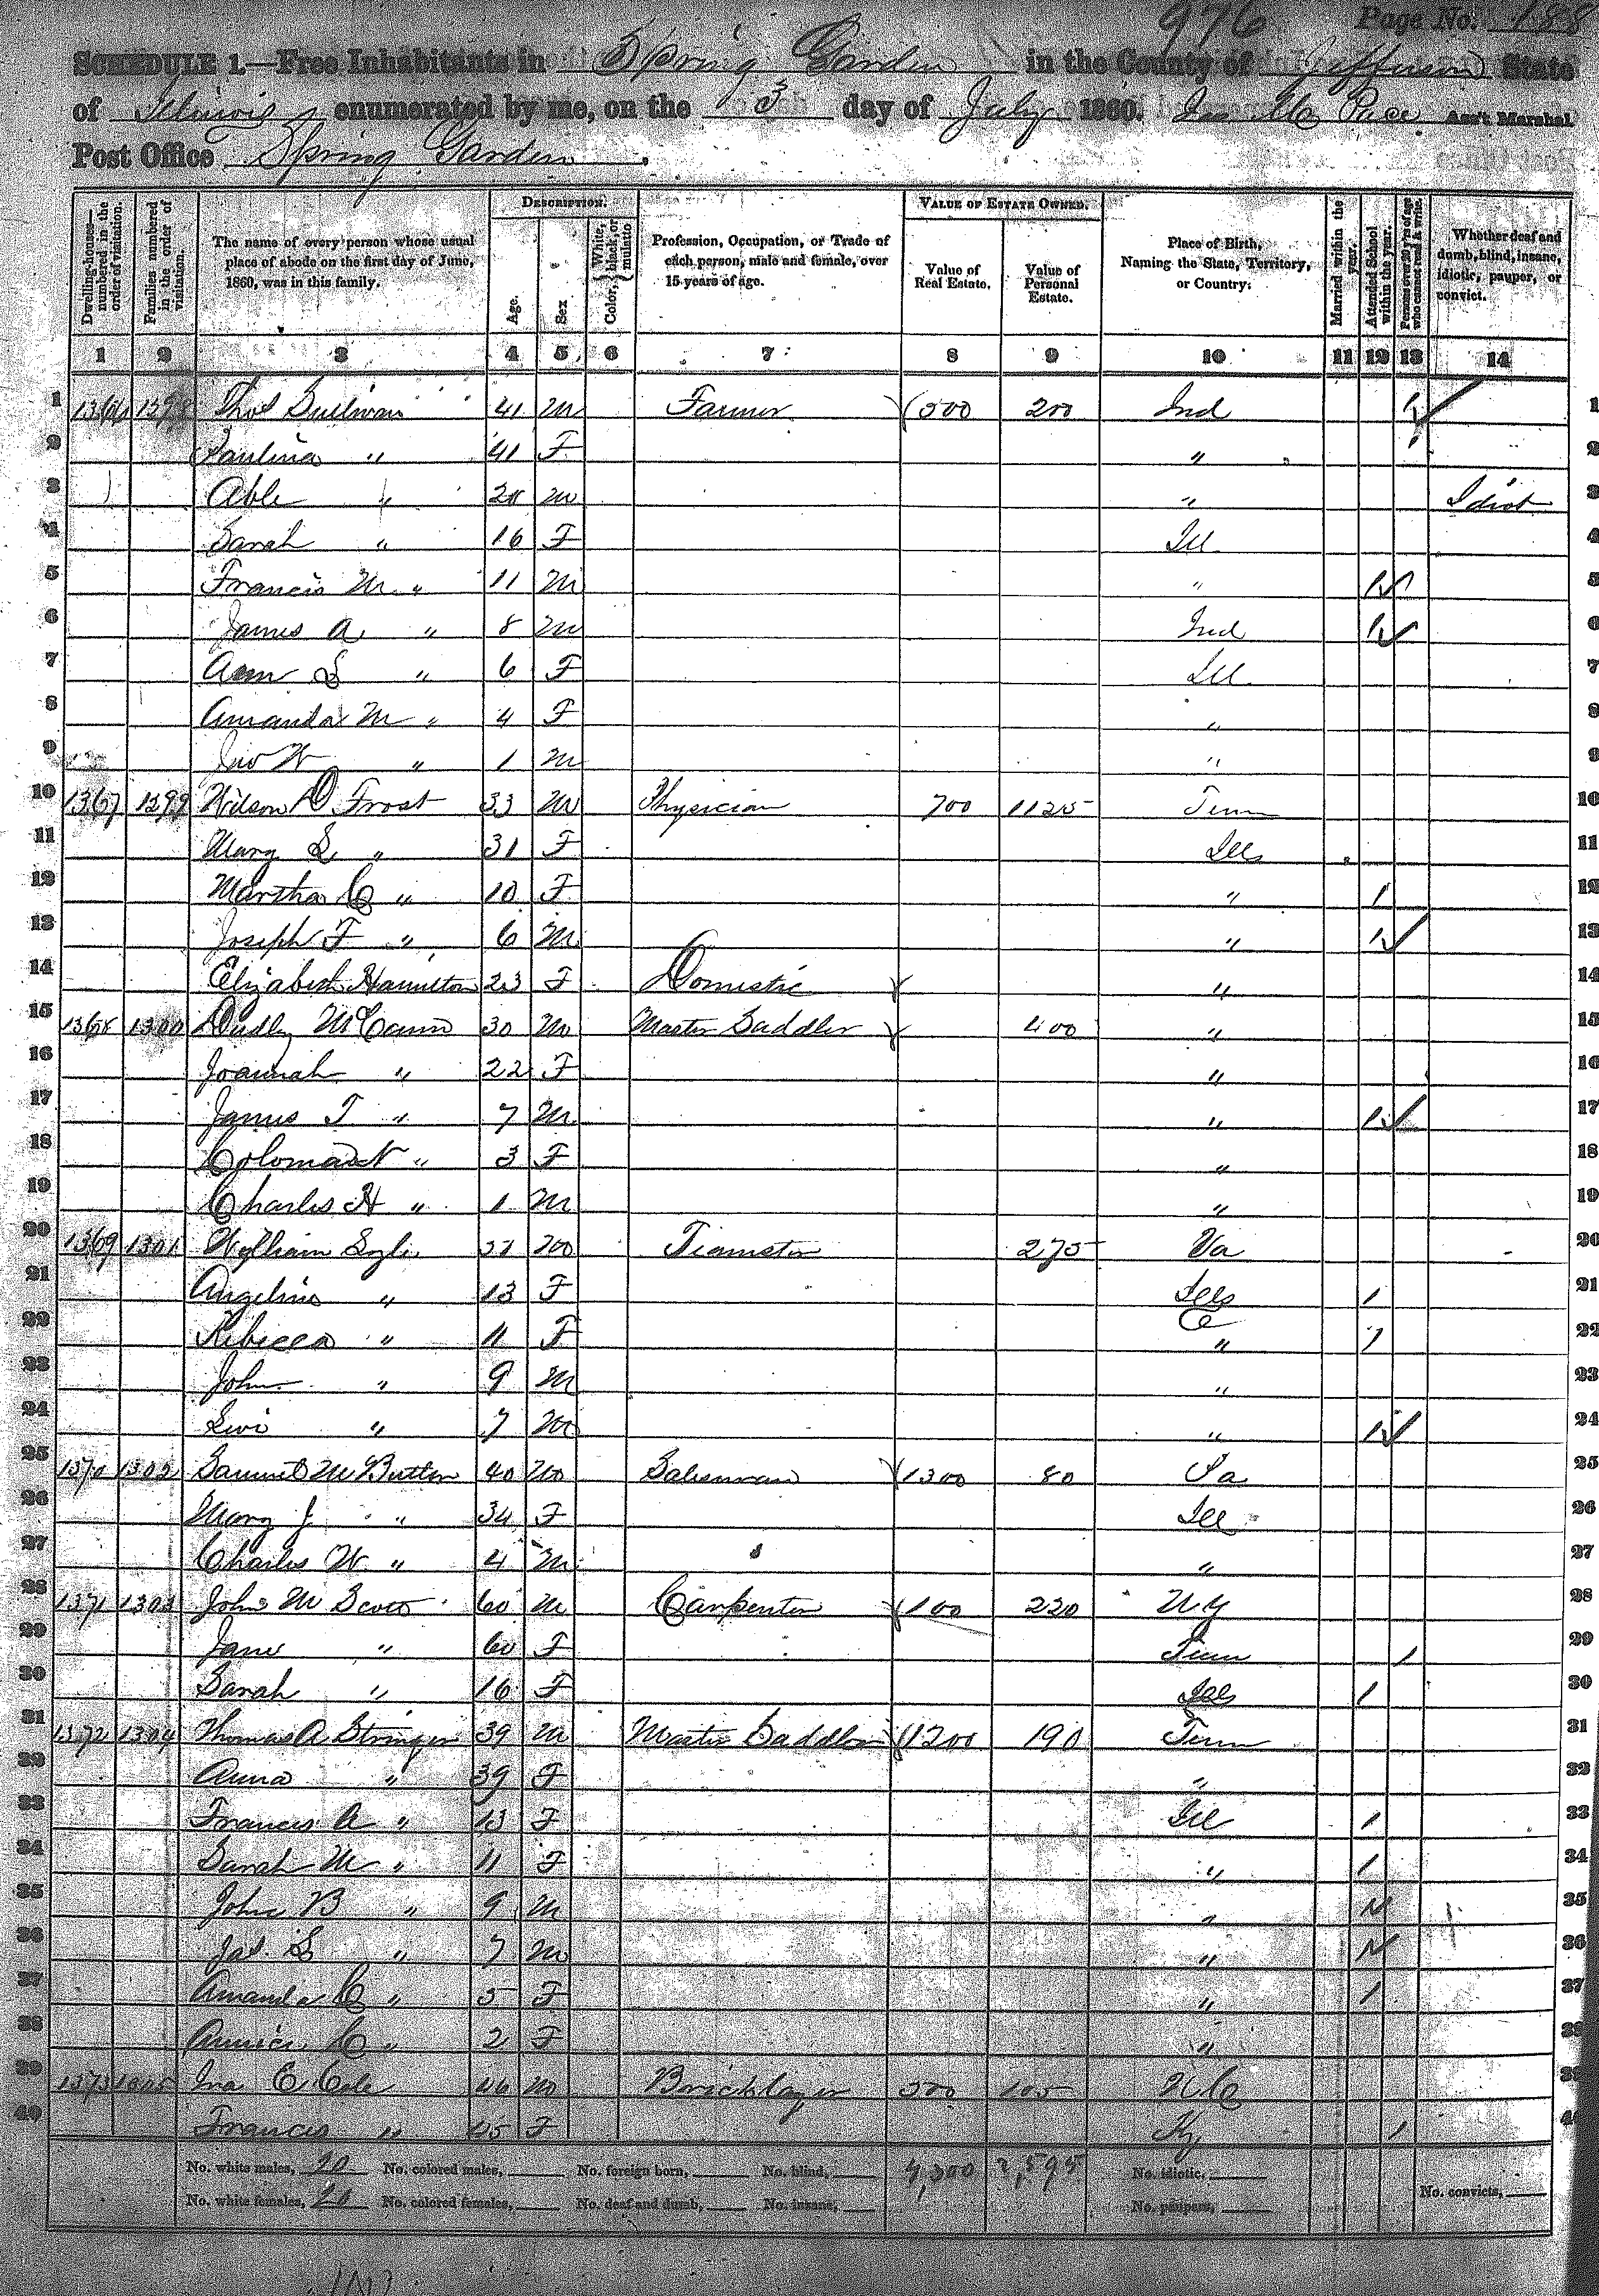 976 Page No. 188
SCHEDULE 1.—Free Inhabitants in Spring Garden in the County of Jefferson State
of Illinois enumerated by me, on the 3 day of July 1860. Pace Ass't Marshal
Post Office Spring Garden.
DESCRIPTION. VALUE OF ESTATE OWNED.
Dwelling-houses—numbered in the order of visitation. Families numbered in the order of visitation. The name of every person whose usual place of abode on the first day of June, 1860, was in this family. Age. Sex Color, { White, black, or mulatto Profession, Occupation, or Trade of each person, male and female, over 15 years of age. Value of Real Estate. Value of Personal Estate. Place of Birth, Naming the State, Territory, or Country. Married within the year. Attended School within the year. Persons over 20 y'rs of age who cannot read & write. Whether deaf and dumb, blind, insane, idiotic, pauper, or convict.
1 2 3 4 5 6 7 8 9 10 11 12 13 14
1 1366 1298 Thos Sullivan 41 M Farmer 500 200 Ind 1 1
2 Paulina " 41 F " 1 2
3 Able " M " Idiot 3
4 Sarah " 16 F Ill 4
5 Francis M. " 11 M " 1 5
6 James A " 8 M Ind 1 6
7 Ann S " 6 F Ill 7
8 Amanda M " 4 F " 8
9 Jno W " 1 M " 9
10 1367 1299 Wilson D Frost 33 M Physician 700 1125 Tenn 10
11 Mary L " 31 F Ills 11
12 Martha C " 10 F " 1 12
13 Joseph F " 6 M " 1 13
14 Elizabeth Hamilton 23 F Domestic " 14
15 1368 1300 Dudley McCann 30 M Master Saddler 400 " 15
16 Joannah " 22 F " 16
17 James T " 7 M " 1 17
18 " 3 F " 18
19 Charles H " 1 M " 19
20 1369 1301 William M Teamster 275 Va 20
21 Angeline " 13 F Ills 1 21
22 Rebecca " 11 F " 1 22
23 John " 9 M " 23
24 Levi " 7 M " 1 24
25 1370 1302 Samuel 40 M Salesman 1300 80 Pa 25
26 Mary J " 34 F Ill 26
27 Charles W " 4 M " 27
28 1371 1303 John M Scott 60 M Carpenter 100 220 28
29 Jane " 60 F Tenn 1 29
30 Sarah " 16 F Ills 1 30
31 1372 1304 Thomas A Stringer 39 M Master Saddler 1200 190 Tenn 31
32 Anna " 39 F " 32
33 Francis A " 13 F Ill 1 33
34 Sarah M " 11 F " 1 34
35 John B " 9 M " 1 35
36 Jas. S " 7 M " 1 36
37 Amanda C " 5 F " 1 37
38 C " 2 F " 38
39 1373 1305 Ira E Cole 46 M Bricklayer 500 105 N C 39
40 Francis " 45 F Ky 1 40
No. white males, 20 No. colored males, No. foreign born, No. blind, 4,300 2,595 No. idiotic,
No. white females, 20 No. colored females, No. deaf and dumb, No. insane, No. paupers, No. convicts,